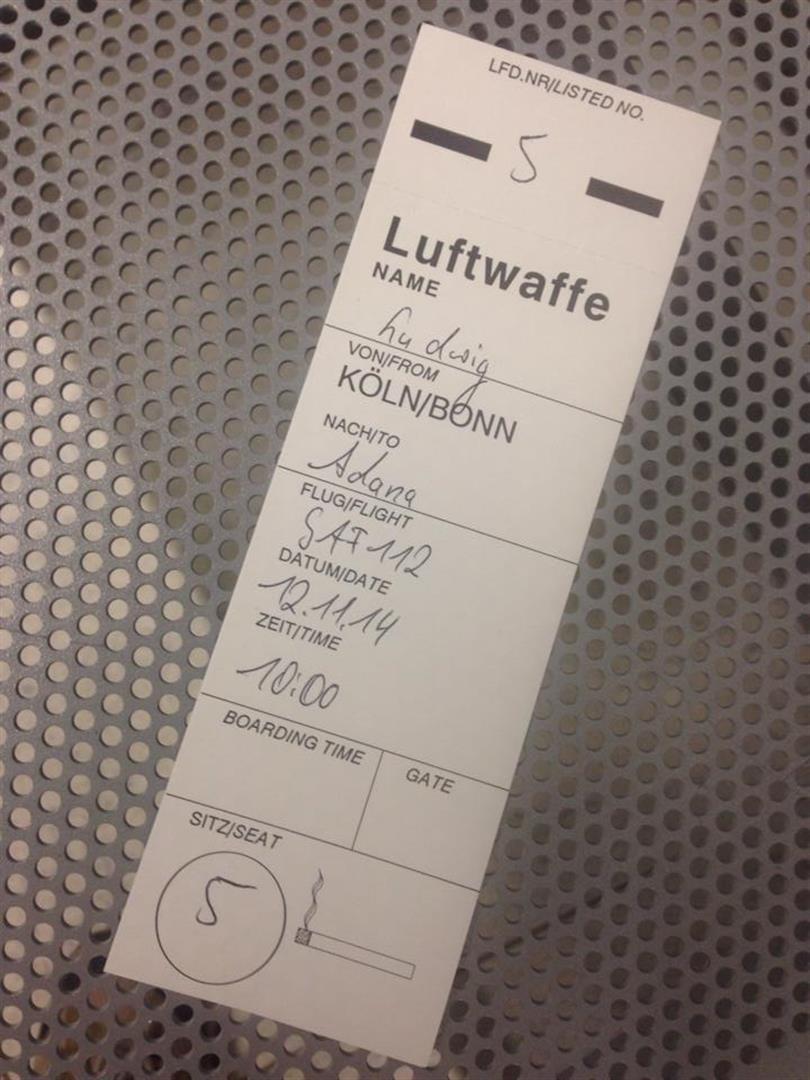 LFD.NR/LISTED NO.
5
Luftwaffe
NAME
Ludwig
VON/FROM
KÖLN/BONN
NACH/TO
Adana
FLUG/FLIGHT
GAF 112
DATUM/DATE
12.11.14
ZEIT/TIME
10:00
BOARDING TIME
GATE
SITZ/SEAT
5